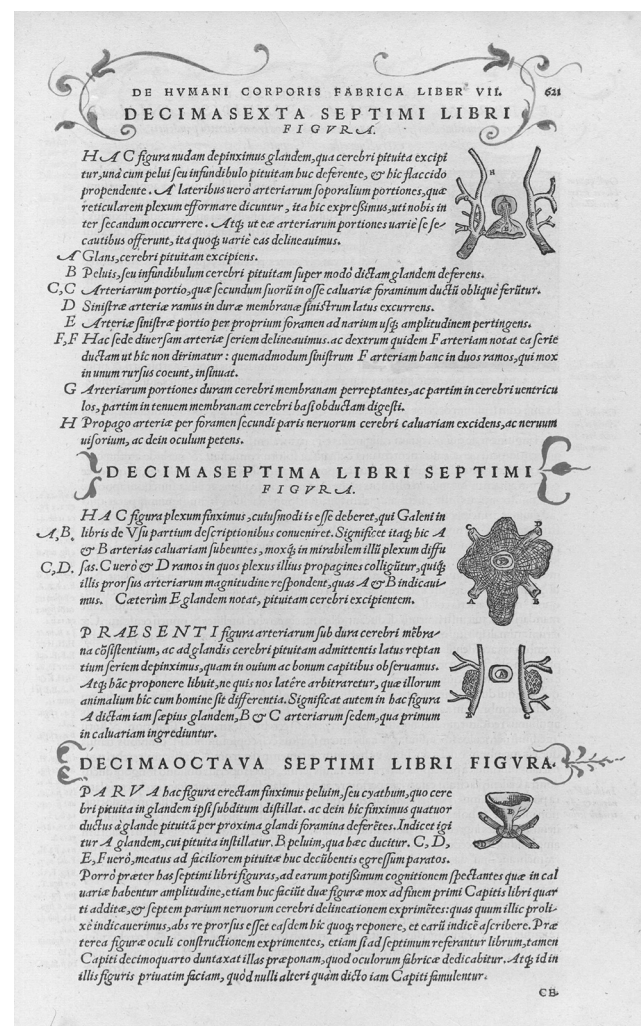 DE HVMANI CORPORIS FABRICA LIBER VII. 621
DECIMASEXTA SEPTIMI LIBRI
FIGVRA.
HAC figura nudam depinximus glandem, qua cerebri pituita excipi
tur, unà cum pelui seu infundibulo pituitam huc deferente, & hic flaccido
propendente. A lateribus uerò arteriarum soporalium portiones, quæ
reticularem plexum efformare dicuntur, ita hic expreßimus, uti nobis in
ter secandum occurrere. Atq; ut eæ arteriarum portiones uariè se se-
cautibus offerunt, ita quoq; uariè eas delineauimus.
A Glans, cerebri pituitam excipiens.
B Peluis, seu infundibulum cerebri pituitam super modò dictam glandem deferens.
C,C Arteriarum portio, quæ secundum suorũ in osse caluariæ foraminum ductũ obliquè ferũtur.
D Sinistræ arteriæ ramus in duræ membranæ sinistrum latus excurrens.
E Arteriæ sinistræ portio per proprium foramen ad narium usq; amplitudinem pertingens.
F,F Hac sede diuersam arteriæ seriem delineauimus. ac dextrum quidem F arteriam notat ea serie
ductam ut hic non dirimatur: quemadmodum sinistrum F arteriam hanc in duos ramos, qui mox
in unum rursus coeunt, insinuat.
G Arteriarum portiones duram cerebri membranam perreptantes, ac partim in cerebri uentricu
los, partim in tenuem membranam cerebri basi obductam digesti.
H Propago arteriæ per foramen secundi paris neruorum cerebri caluariam excidens, ac neruum
uisorium, ac dein oculum petens.
DECIMASEPTIMA LIBRI SEPTIMI
FIGVRA.
HAC figura plexum finximus, cuiusmodi is esse deberet, qui Galeni in
A,B. libris de Vsu partium descriptionibus conueniret. Significet itaq; hic A
& B arterias caluariam subeuntes, moxq; in mirabilem illũ plexum diffu
C,D. sas. C uerò & D ramos in quos plexus illius propagines colligũtur, quiq;
illis prorsus arteriarum magnitudine respondent, quas A & B indicaui-
mus. Cæterùm E glandem notat, pituitam cerebri excipientem.
PRAESENTI figura arteriarum sub dura cerebri mẽbra-
na cõsistentium, ac ad glandis cerebri pituitam admittentis latus reptan
tium seriem depinximus, quam in ouium ac bonum capitibus obseruamus.
Atq; hãc proponere libuit, ne quis nos latêre arbitraretur, quæ illorum
animalium hic cum homine sit differentia. Significat autem in hac figura
A dictam iam sæpius glandem, B & C arteriarum sedem, qua primum
in caluariam ingrediuntur.
DECIMAOCTAVA SEPTIMI LIBRI FIGVRA.
PARVA hac figura erectam finximus peluim, seu cyathum, quo cere
bri pituita in glandem ipsi subditum distillat. ac dein hic finximus quatuor
ductus à glande pituitã per proxima glandi foramina deferẽtes. Indicet igi
tur A glandem, cui pituita instillatur. B peluim, qua hæc ducitur. C, D,
E, F uerò, meatus ad faciliorem pituitæ huc decũbentis egressum paratos.
Porrò præter has septimi libri figuras, ad earum potißimum cognitionem spectantes quæ in cal
uariæ habentur amplitudine, etiam huc faciũt duæ figuræ mox ad finem primi Capitis libri quar
ti additæ, & septem parium neruorum cerebri delineationem exprimẽtes: quas quum illic proli-
xè indicauerimus, abs re prorsus esset easdem hic quoq; reponere, et earũ indicẽ ascribere. Præ
terea figuræ oculi constructionem exprimentes, etiam si ad septimum referantur librum, tamen
Capiti decimoquarto duntaxat illas præponam, quod oculorum fabricæ dedicabitur. Atq; id in
illis figuris priuatim faciam, quòd nulli alteri quàm dicto iam Capiti famulentur.